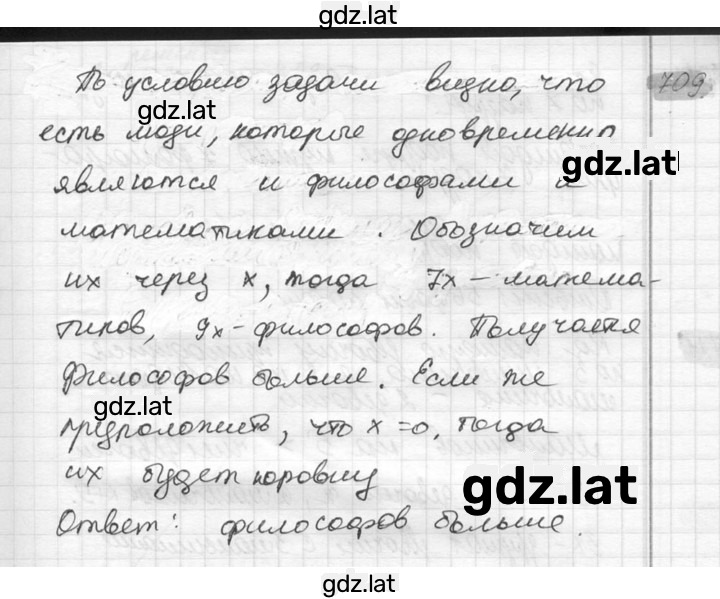 gdz.lat
По условию задачи видно, что 709.
gdz.lat
есть люди, которые одновременно
gdz.lat
являются и философами и
математиками. Обозначим
их через x, тогда 7x – матема-
тиков, 9x – философов. Получается
Философов больше. Если же
gdz.lat
предположить, что x = 0, тогда
их будет поровну
gdz.lat
Ответ: философов больше.
gdz.lat